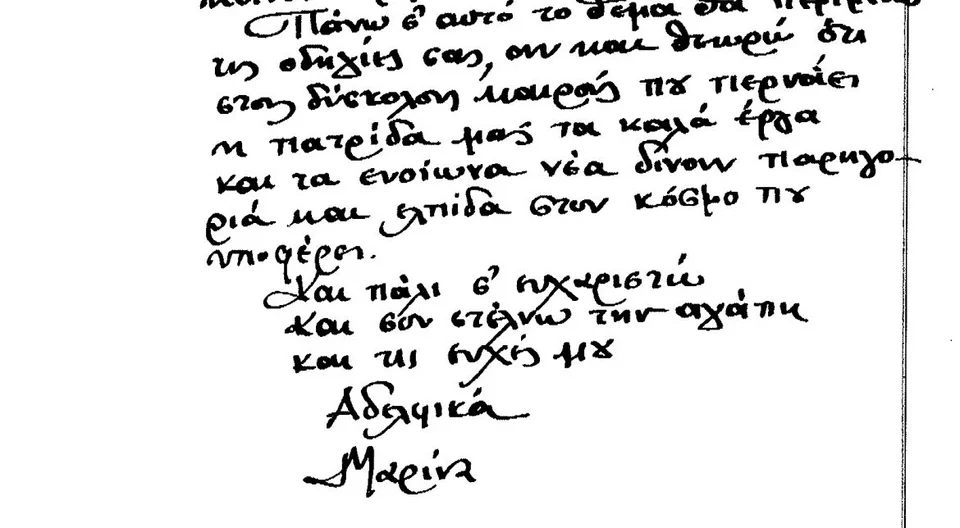 Πάνω σ' αυτό το θέμα θα περιμένω
τις οδηγίες σας, αν και θεωρώ ότι
στους δύσκολους καιρούς που περνάει
η πατρίδα μας τα καλά έργα
και τα ευοίωνα νέα δίνουν παρηγο-
ριά και ελπίδα στον κόσμο που
υποφέρει.
Και πάλι σ' ευχαριστώ
και σου στέλνω την αγάπη
και τις ευχές μου
Αδελφικά
Μαρίνα